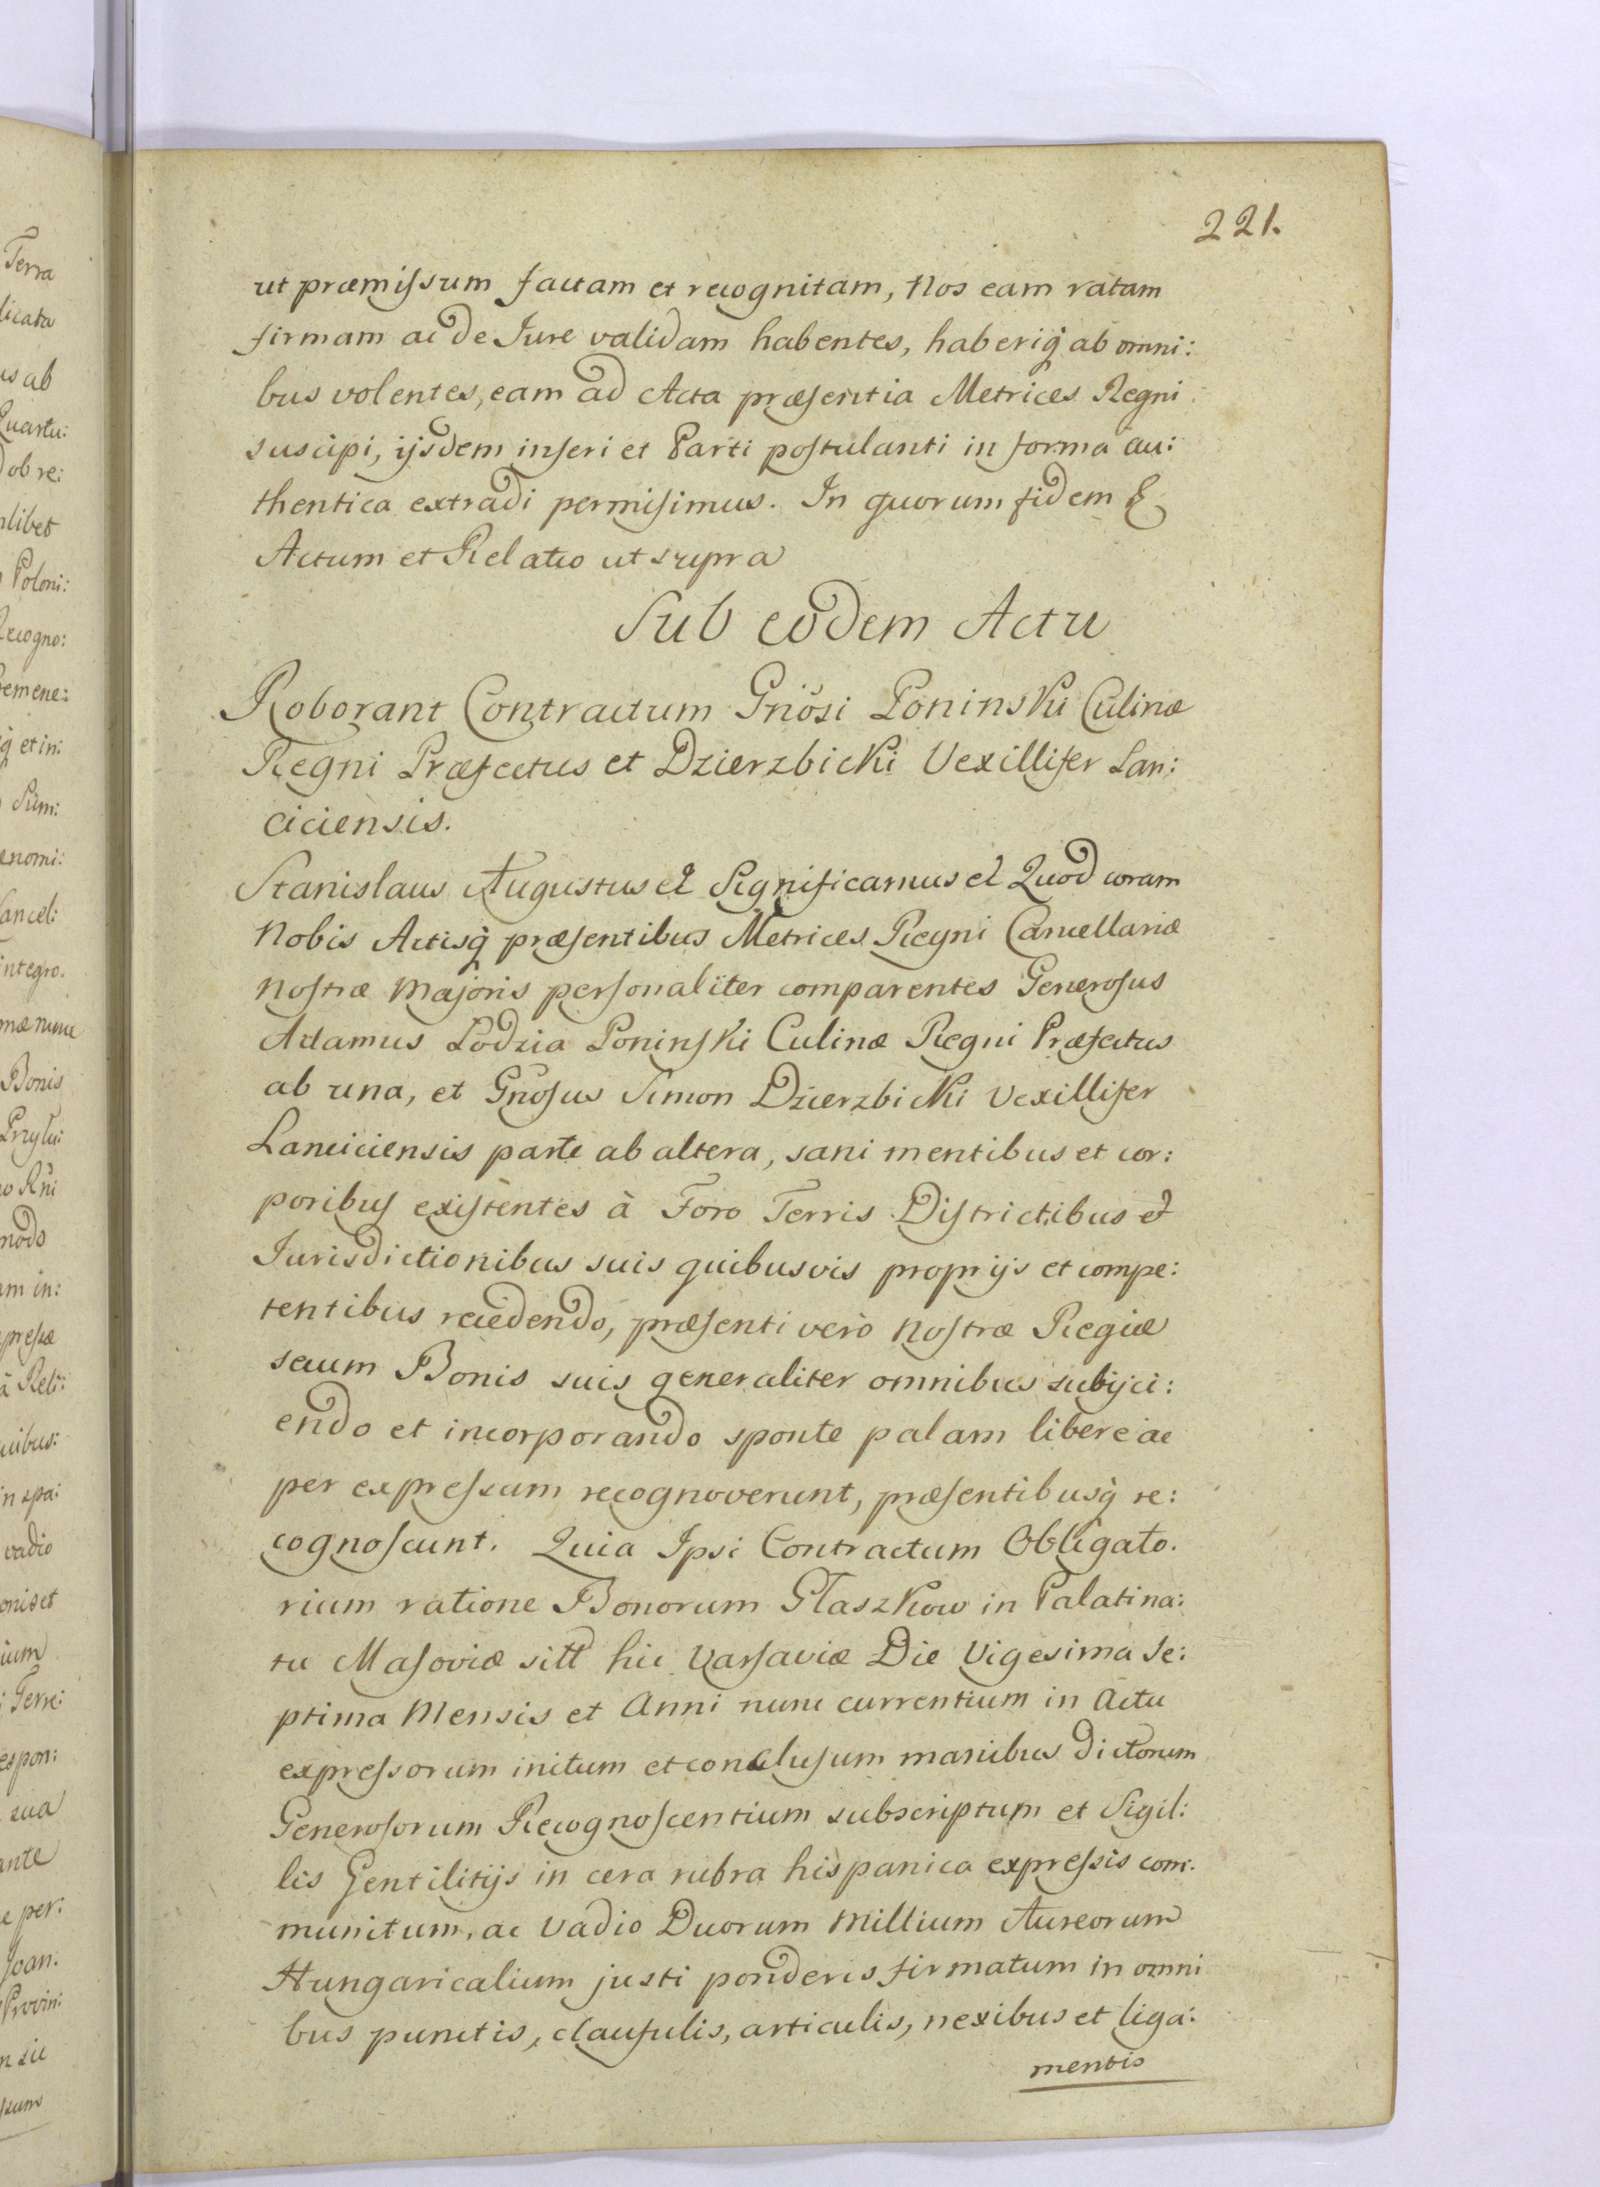 221.
ut præmissum factam et recognitam, Nos eam ratam
firmam ac de Jure validam habentes, haberiq̃ ab omni:
bus volentes, eam ad Acta præsentia Metrices Regni
suscipi, ijsdem inseri et Parti postulanti in forma au:
thentica extradi permisimus. In quorum fidem &
Actum et Relatio ut supra
Sub eodem Actu
Roborant Contractum Gnosi Poninski Culinæ
Regni Præfectus et Dzierzbicki Vexillifer Lan:
ciciensis.
Stanislaus Augustus et Significamus et Quod coram
Nobis Actisq̃ præsentibus Metrices Regni Cancellariæ
Nostræ Majoris personaliter comparentes Generosus
Adamus Lodzia Poninski Culinæ Regni Præfectus
ab una, et Gnosus Simon Dzierzbicki Vexillifer
Lanciciensis parte ab altera, sani mentibus et cor:
poribus existentes à Foro Terris Districtibus et
Jurisdictionibus suis quibusvis proprijs et compe:
tentibus recedendo, præsenti verò Nostræ Regiæ
secum Bonis suis generaliter omnibus subijci:
endo et incorporando sponte palam libere ac
per expressum recognoverunt, præsentibusq̃ re:
cognoscunt. Quia Ipsi Contractum Obligato.
rium ratione Bonorum Głaszkow in Palatina:
tu Masoviæ sitt hic Varsaviæ Die Vigesima Se:
ptima Mensis et Anni nunc currentium in Actu
expressorum initum et conclusum manibus dictorum
Generosorum Recognoscentium subscriptum et Sigil:
lis Gentilitijs in cera rubra hispanica expressis com.
munitum, ac vadio Duorum Millium Aureorum
Hungaricalium justi ponderis firmatum in omni
bus punctis, clausulis, articulis, nexibus et liga:
mentis